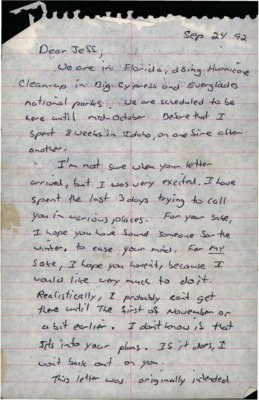 Sep 24 92
Dear Jeff,
We are in Florida, doing Hurricane
Clean-up in Big Cypress and Everglades
national parks. We are scheduled to be
here until mid-October. Before that I
spent 8 weeks in Idaho, on one fire after
another.
I'm not sure when your letter
arrived, but I was very excited. I have
spent the last 3 days trying to call
you in various places. For your sake,
I hope you have found someone for the
winter, to ease your mind. For my
sake, I hope you haven't, because I
would like very much to do it.
Realistically, I probably can't get
there until the first of November or
a bit earlier. I don't know if that
fits into your plans. If it does, I
won't back out on you.
This letter was originally intended